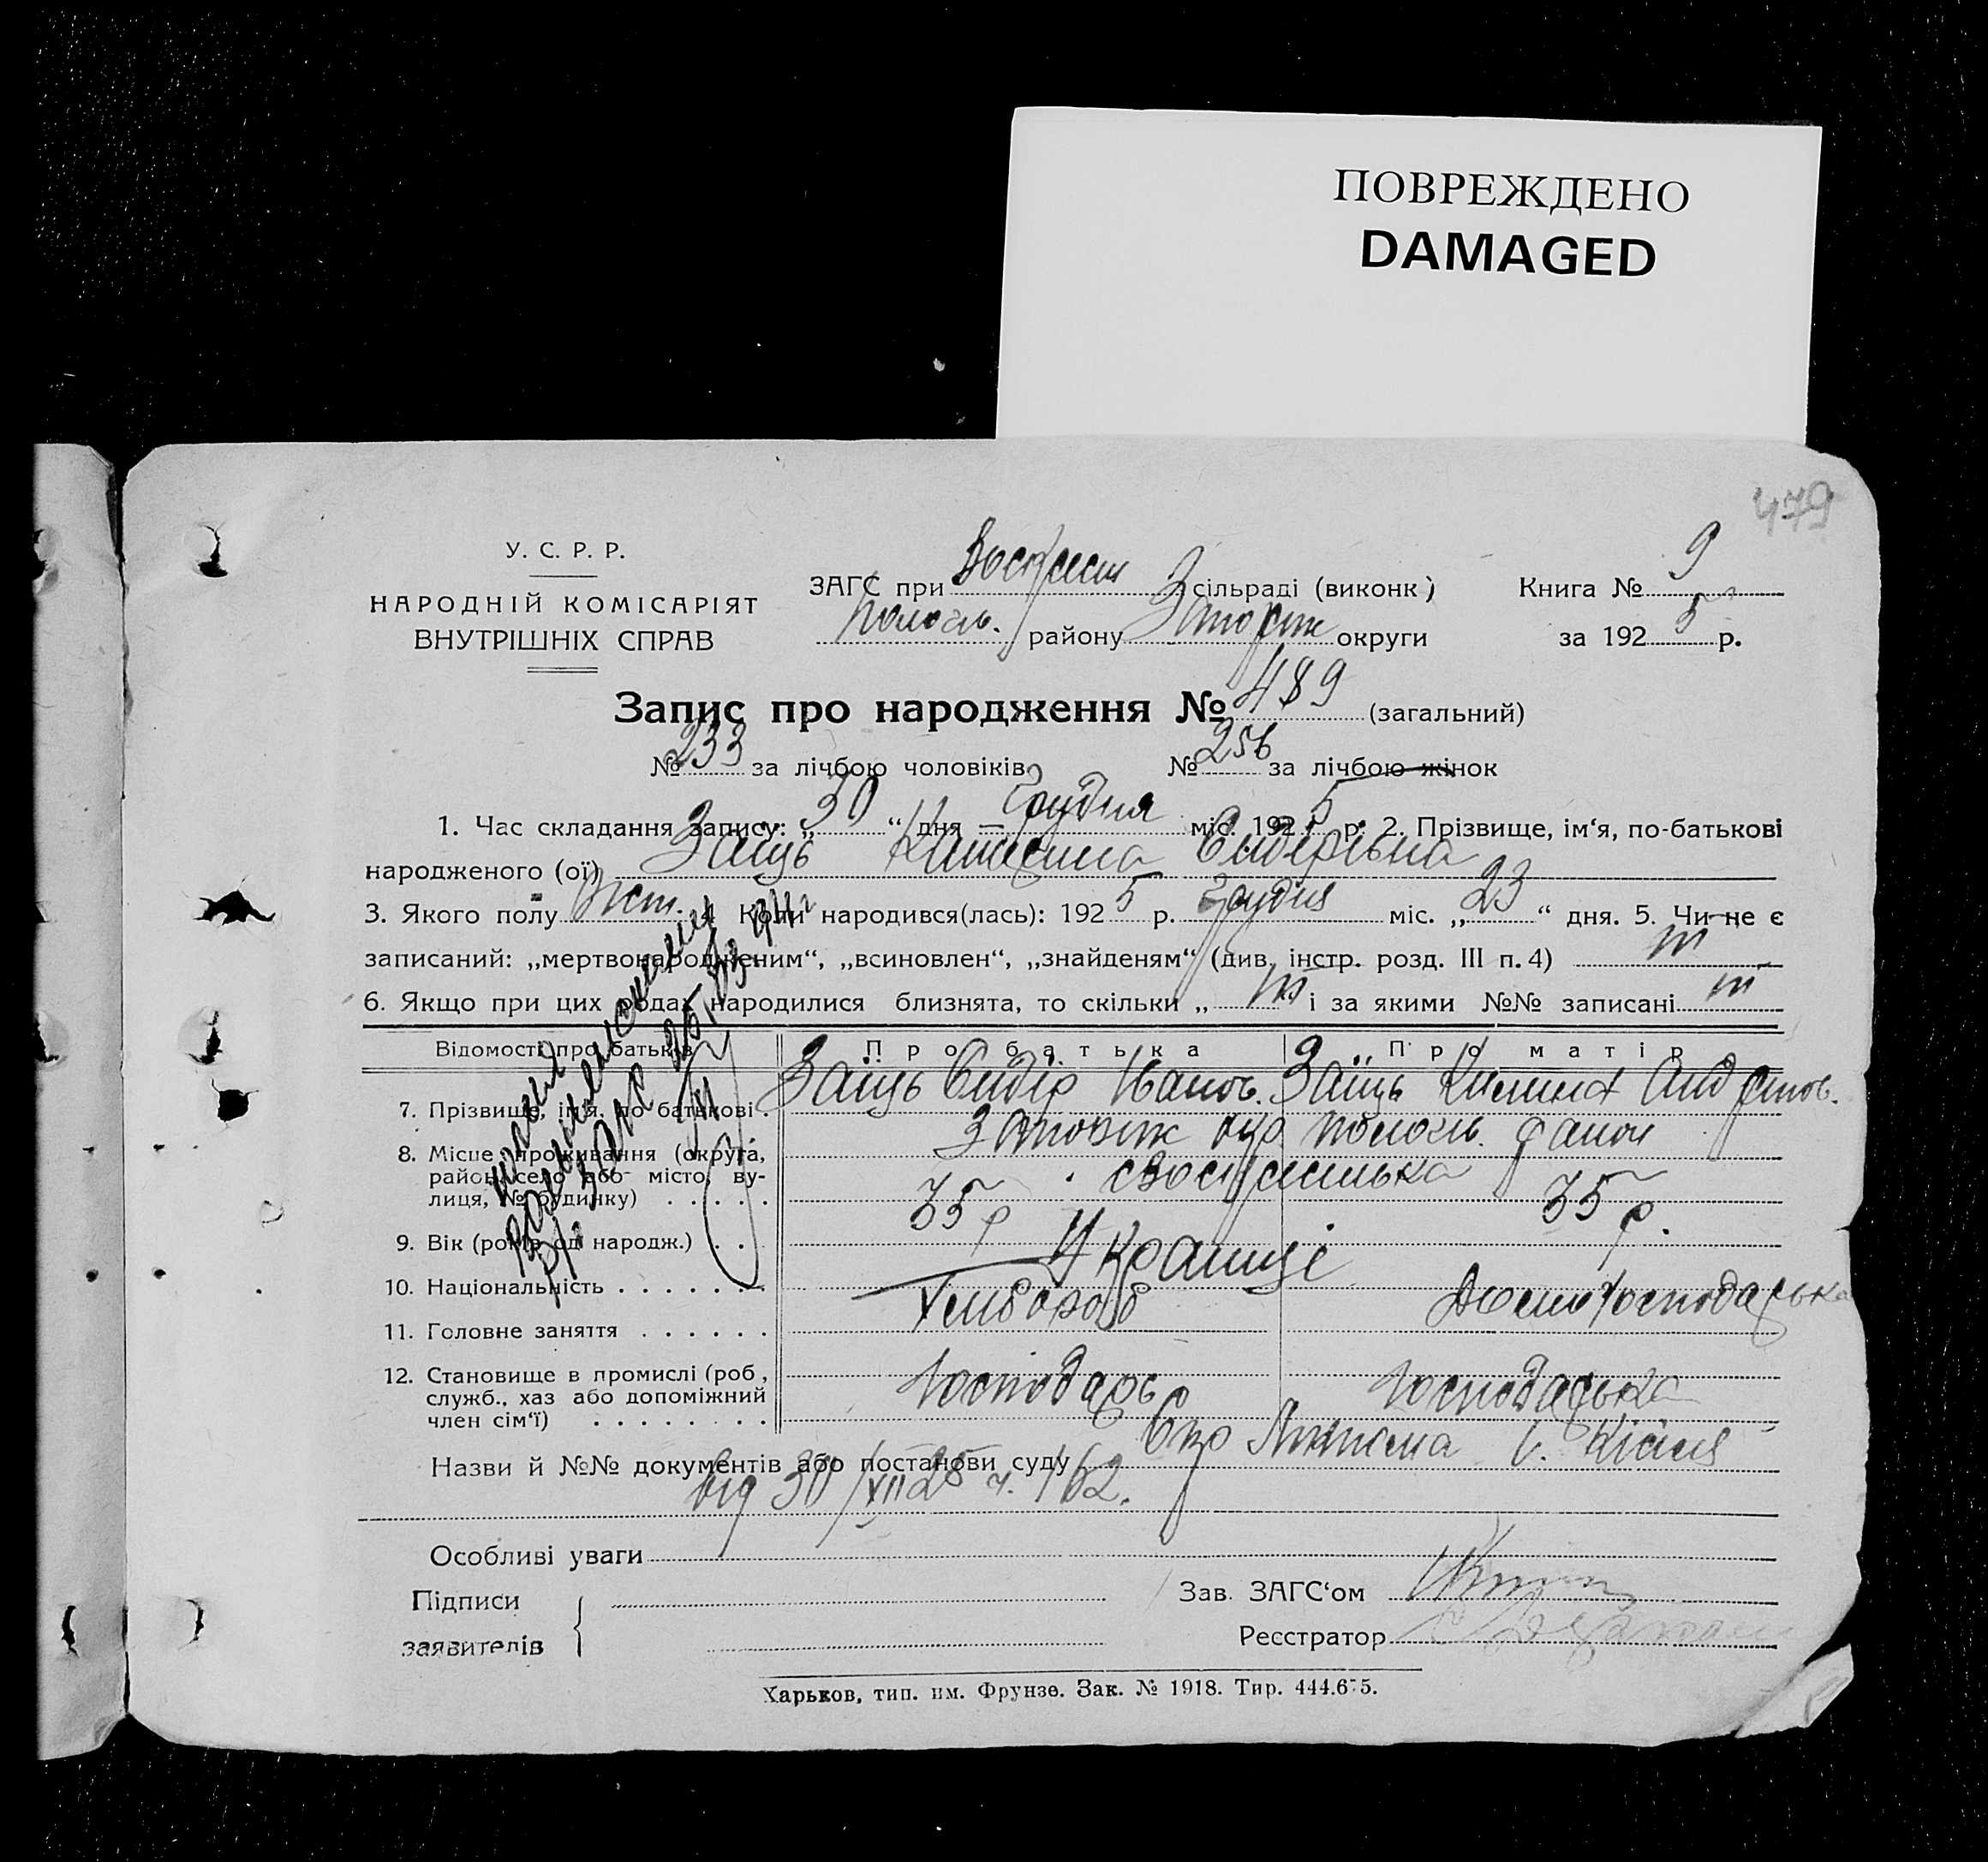 ПОВРЕЖДЕНО
DAMAGED
479
У. С. Р. Р.
НАРОДНІЙ КОМІСАРІЯТ
ВНУТРІШНІХ СПРАВ
ЗАГС при сільраді (виконк)
Полог. району Запоріж округи
Книга № 9
за 1925 р.
Запис про народження № 489 (загальний)
№ 233 за лічбою чоловіків № 256 за лічбою жінок
1. Час складання запису: „30“ дня Грудня міс. 1925 р. 2. Прізвище, ім‘я, по-батькові
народженого (ої) Заїць Катерина Сидерівна
3. Якого полу Жст. 4 Коли народився(лась): 1925 р. Грудня міс. „23“ дня. 5. Чи не є
записаний: „мертвонародженим“, „всиновлен“, „знайденям“ (див. інстр. розд. III п. 4)
6. Якщо при цих родах народилися близнята, то скільки „ і за якими №№ записані
Відомості про батьків Про батька Про матір
7. Прізвище, ім‘я, по батькові . Заїць Сидір Іванов. Заїць Килина Андріов.
8. Місце проживання (округа,
район, село або місто, ву-
лиця, № будинку) . . . . .
Запоріж окр Пологів. район
9. Вік (років од народж.) . . . 35 р 35 р.
10. Національність . . . . . . . Українці
11. Головне заняття . . . . . . Хлібороб Домогосподарька
12. Становище в промислі (роб,
служб., хаз або допоміжний
член сім‘ї) . . . . . . . .
Господарь Господарька
Назви й №№ документів або постанови суду
від 30/XII 25 ч. 162.
Особливі уваги
Підписи
заявителів
Зав. ЗАГС‘ом
Реєстратор
Харьков, тип. им. Фрунзе. Зак. № 1918. Тир. 444.675.